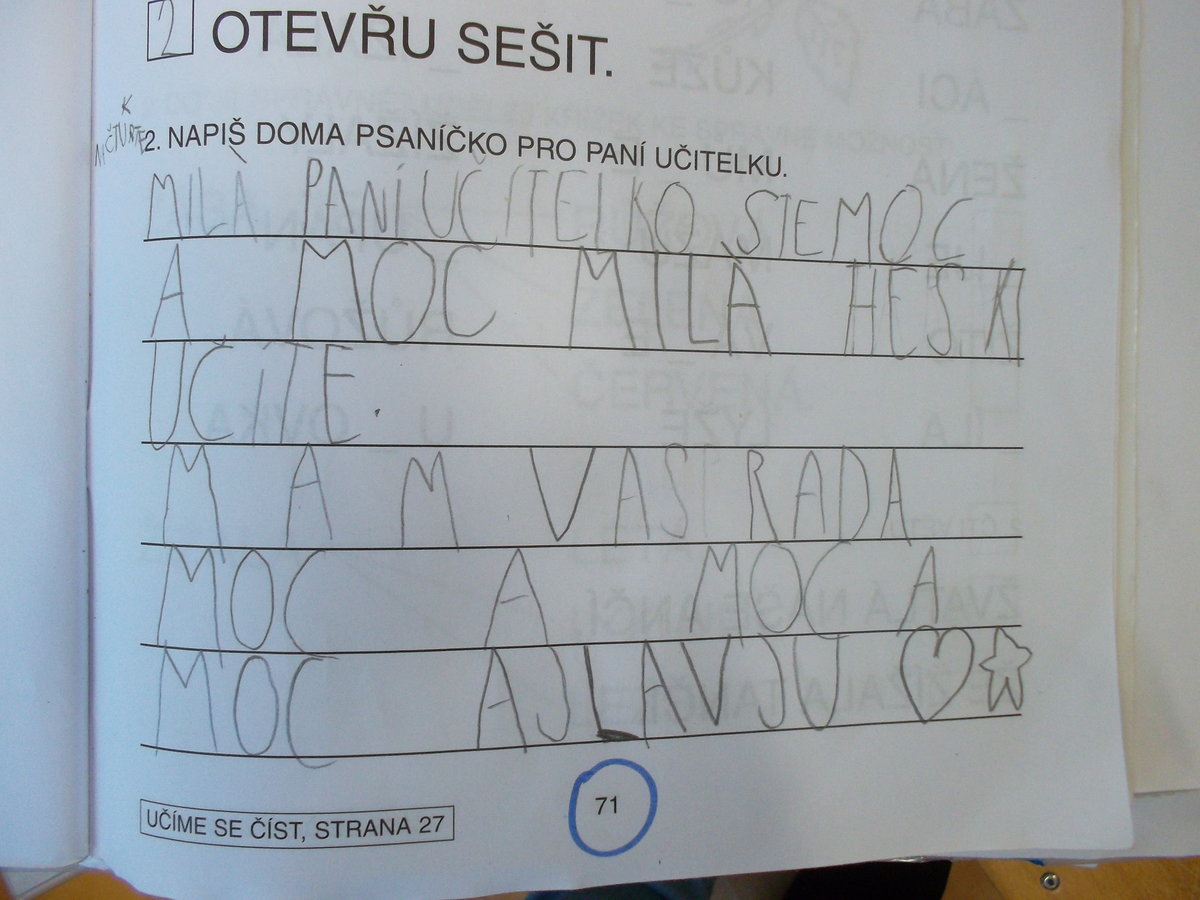 2 OTEVŘU SEŠIT.
K
ČTVRTE
2. NAPIŠ DOMA PSANÍČKO PRO PANÍ UČITELKU.
MILÀ PANÍ UČITELKO STEMOC
A MOC MILÀ HESKI
UČITE.
MAM VAS RADA
MOC A MOC A
MOC AJLAVJU ♡☆
UČÍME SE ČÍST, STRANA 27
71